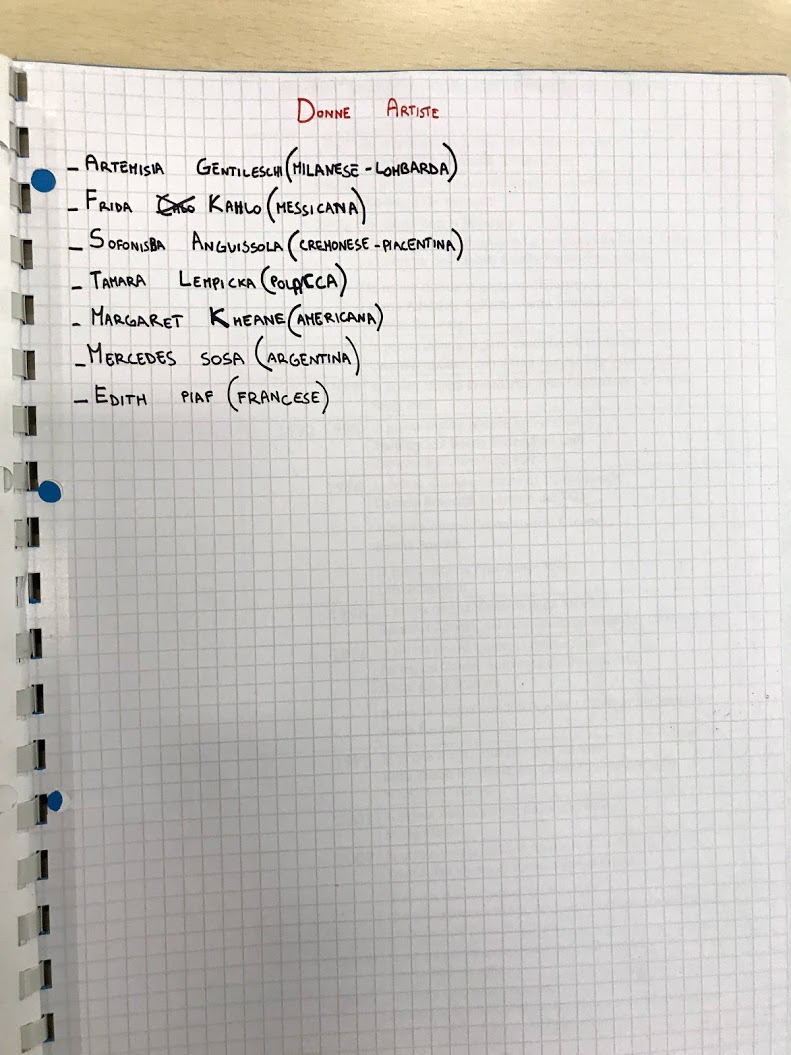 Donne Artiste
- Artemisia Gentileschi (milanese - lombarda)
- Frida Kahlo (messicana)
- Sofonisba Anguissola (cremonese - piacentina)
- Tamara Lempicka (polacca)
- Margaret Kheane (americana)
- Mercedes sosa (argentina)
- Edith piaf (francese)